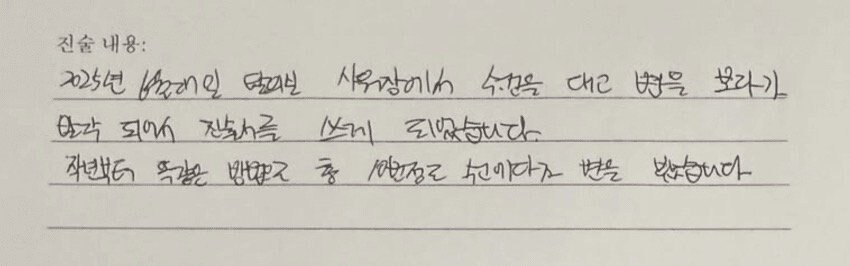 진술 내용:
2025년 6월 2일 샤워장에서 수건을 대고 변을 보다가
발각 되어서 진술서를 쓰게 되었습니다.
작년부터 똑같은 방법으로 총 10번정도 수건에다가 변을 봤습니다